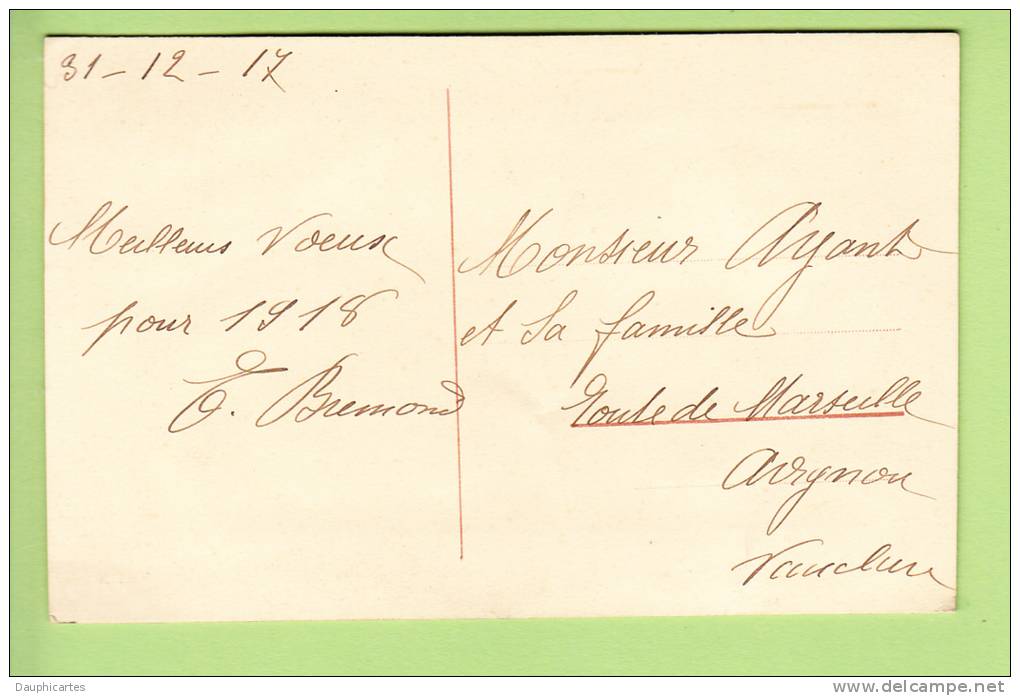 31-12-17
Meilleurs Voeux
pour 1918
E. Bremond
Monsieur Ayant
et Sa famille
Route de Marseille
Avignon
Vaucluse
Dauphicartes
www.delcampe.net